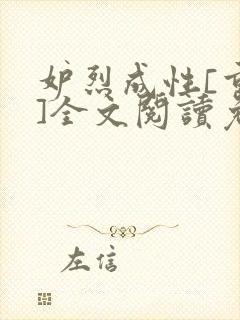 妒烈成性[
]全文閱讀
左信